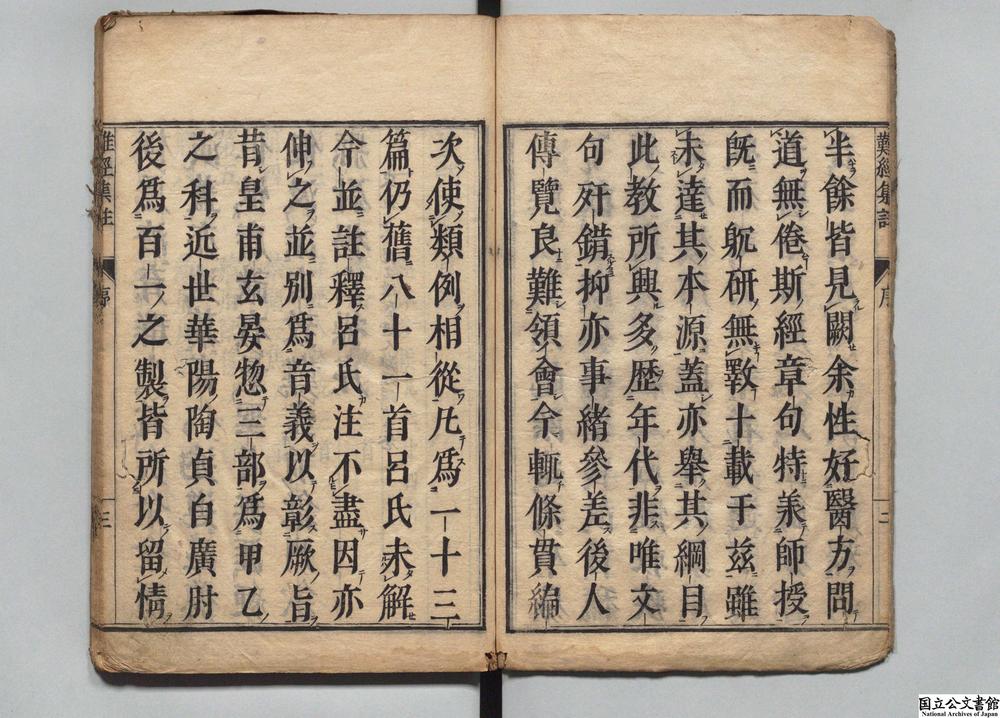 難經集註
序
二
半餘皆見闕余性好醫方問
道無倦斯經章句特承師授
既而躭研無斁十載于兹雖
未達其本源蓋亦舉其綱目
此教所興多歴年代非唯文
句舛錯抑亦事緒參差後人
傳覽良難領會今輙條貫編
次使類例相從凡爲一十三
篇仍舊八十一首呂氏未解
今並註釋呂氏注不盡因亦
伸之並別爲音義以彰厥旨
昔皇甫玄晏惣三部爲甲乙
之科近世華陽陶貞白廣肘
後爲百一之製皆所以留情
難經集註
序
三
国立公文書館
National Archives of Japan